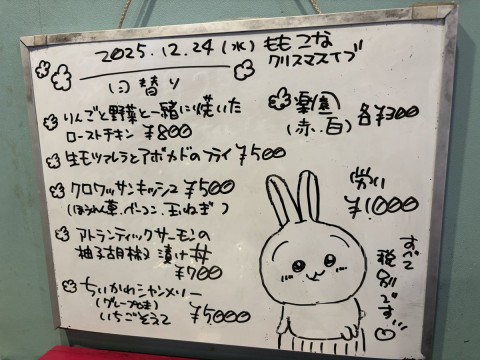 2025.12.24(水) ももこな
クリスマスイブ
日替り
りんごと野菜と一緒に焼いた
ローストチキン ¥800
生モツァレラとアボカドのフライ ¥500
クロワッサンキッシュ ¥500
(ほうれん草、ベーコン、玉ねぎ)
アトランティックサーモンの
柚子胡椒漬け丼
¥700
ちいかわシャンメリー
(グレープ味)
いちごそえて ¥5,000
楽園 各¥300
(赤、白)
労い
¥1,000
すべて
税別です